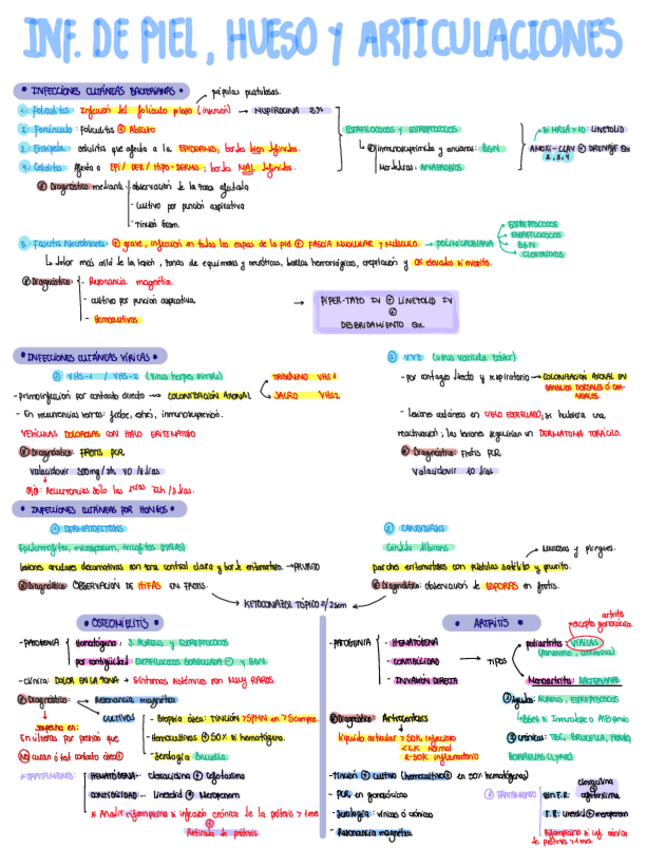 INF. DE PIEL, HUESO Y ARTICULACIONES
• INFECCIONES CUTÁNEAS BACTERIANAS •
pápulas pustulosas.
1. Foliculitis: Infección del folículo piloso (inserción) → MUPIROCINA 2%
2. Forúnculo: Foliculitis + Absceso
3. Erisipela: celulitis que afecta a la EPIDERMIS; bordes bien definidos.
4. Celulitis: Afecta a EPI / DER / HIPO-DERMIS; bordes MAL definidos.
ESTAFILOCOCOS Y ESTREPTOCOCOS
inmunodeprimidos y ancianos: BGN
Mordeduras: ANAEROBIOS
SI MRSA > 10: LINEZOLID
AMOXI-CLAV + DRENAJE Qx
2, 3, 4
Diagnóstico mediante
- observación de la zona afectada
- Cultivo por punción aspirativa
- Tinción Gram.
5. Fascitis Necrotizante: + grave, infección en todas las capas de la piel + FASCIA MUSCULAR Y MÚSCULO. → POLIMICROBIANA
ESTREPTOCOCOS
ESTAFILOCOCOS
BGN
CLOSTRIDIOS
↳ dolor más allá de la lesión, zonas de equimosis y necróticas, bullas hemorrágicas, crepitación y CK elevadas si miositis.
Diagnóstico:
- Resonancia magnética.
- cultivo por punción aspirativa.
- Hemocultivos
→ PIPER-TAZO IV + LINEZOLID IV
+
DESBRIDAMIENTO Qx.
• INFECCIONES CUTÁNEAS VÍRICAS •
① VHS-1 / VHS-2 (Virus herpes simple)
- primoinfección por contacto directo → COLONIZACIÓN AXONAL
TRIGÉMINO VHS1
SACRO VHS2
- En recurrencias vemos: fiebre, estrés, inmunosupresión.
VESÍCULAS DOLOROSAS CON HALO ERITEMATOSO
Diagnóstico: FROTIS PCR
Valaciclovir 500mg/12h VO /5 días
② VVZ (virus varicela zóster)
- por contagio directo y respiratorio → COLONIZACIÓN AXONAL EN GANGLIOS DORSALES O CRANEALES.
- Lesiones cutáneas en CIELO ESTRELLADO; si hubiera una
reactivación, las lesiones seguirían un DERMATOMA TORÁCICO.
Diagnóstico: Frotis PCR
Valaciclovir 10 días
• INFECCIONES CUTÁNEAS POR HONGOS •
① DERMATOFITOSIS
Epidermofitos, microsporum, tricofitos (TIÑAS)
lesiones anulares descamativas con zona central clara y borde eritematoso. → PRURITO
Diagnóstico: OBSERVACIÓN DE HIFAS EN FROTIS.
② CANDIDIASIS
Cándida Albicans
mucosas y pliegues.
parches eritematosos con pústulas satélite y prurito.
Diagnóstico: observación de ESPORAS en frotis.
KETOCONAZOL TÓPICO 2/2sem
• OSTEOMIELITIS •
- PATOGENIA
Hematógena: S. AUREUS y ESTREPTOCOCOS
por contigüidad: ESTAFILOCOCOS COAGULASA ⊖ y BGN
- clínica: DOLOR EN LA ZONA → Síntomas sistémicos son MUY RAROS.
Diagnóstico:
Resonancia magnética
sospecha en:
En úlceras por presión que
CULTIVOS
- Biopsia ósea: TINCIÓN >5PMN en >5campos.
- Hemocultivos + 50% si hematógena.
- Serología Brucella
TRATAMIENTO:
HEMATÓGENA - cloxacilina + cefotaxima
CONTIGÜIDAD - Linezolid + Meropenem
* Añadir rifampicina si infección crónica de la prótesis > 1 mes
+
Retirada de prótesis.
• ARTRITIS •
- PATOGENIA
- HEMATÓGENA
- CONTIGÜIDAD
- INVASIÓN DIRECTA
→ TIPOS
artritis
excepto gonocócica
poliartritis: VÍRICAS
Monoartritis: BACTERIANAS
Agudas: AUREUS, ESTREPTOCOCOS
crónicas: TBC, BRUCELLA, HONGOS
BORRELIAS (LYME)
Diagnóstico: Artrocentesis
líquido articular > 50K infeccioso
<2K normal
2-50K inflamatorio
- TINCIÓN + Cultivo (hemocultivo + en 50% hematógenas)
- PCR en gonocócicas
- Serología: víricas ó crónicas
- Resonancia magnética
TRATAMIENTO
SIN F.R: cloxacilina + cefotaxima
F.R: Linezolid + meropenem
Rifampicina si inf. crónica
de prótesis >1mes